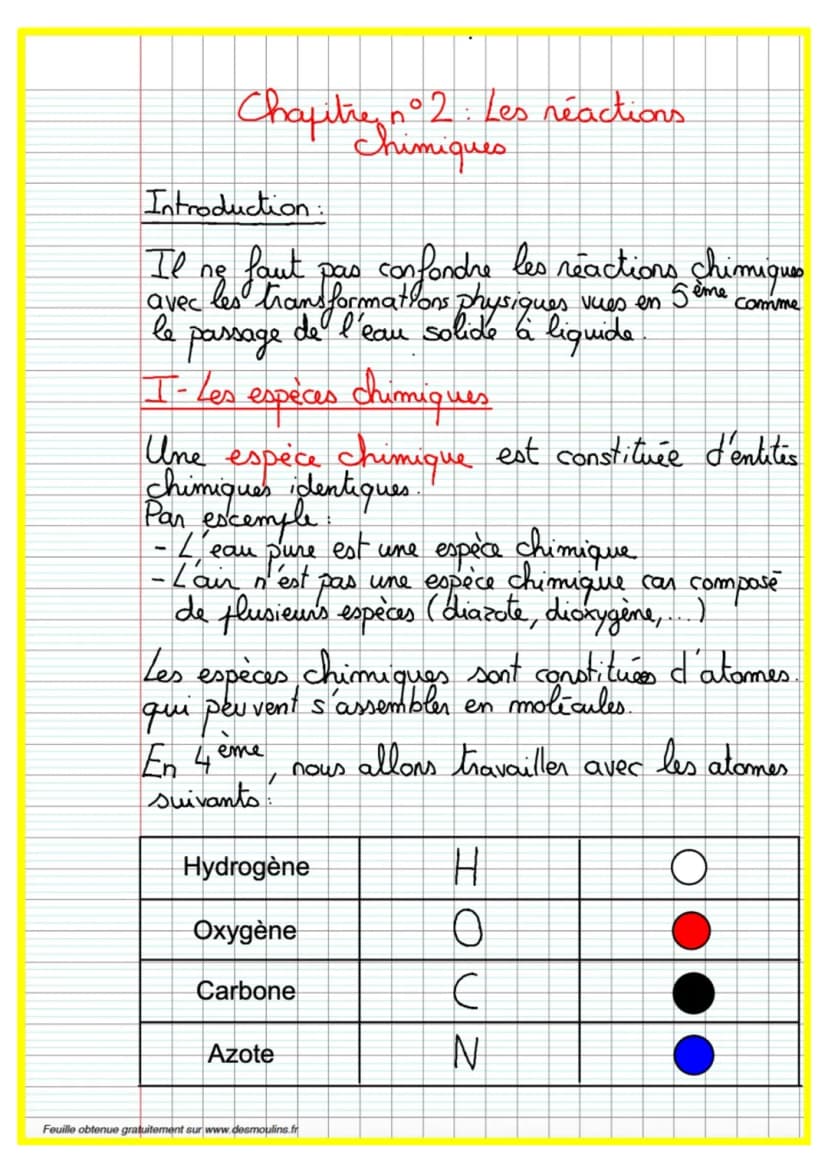 Chapitre n°2 : Les réactions
chimiques
Introduction :
Il ne faut pas confondre les réactions chimiques
avec les transformations physiques vues en 5ème comme
le passage de l'eau solide à liquide.
I- Les espèces chimiques
Une espèce chimique est constituée d'entités
chimiques identiques.
Par escemple :
- L'eau pure est une espèce chimique
- L'air n'est pas une espèce chimique car composé
de plusieurs espèces (diazote, dioxygène,...)
Les espèces chimiques sont constituées d'atomes.
qui peuvent s'assembler en molécules.
En 4ème, nous allons travailler avec les atomes
suivants :
Hydrogène H
Oxygène O
Carbone C
Azote N
Feuille obtenue gratuitement sur www.desmoulins.fr